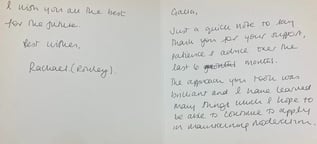 Giulia,
Just a quick note to say
thank you for your support,
patience & advice over the
last 6 months.
The approach you took was
brilliant and I have learned
many things which I hope to
be able to continue to apply
in maintaining moderation.
I wish you all the best
for the future.
Best wishes,
Rachael (Rowley).